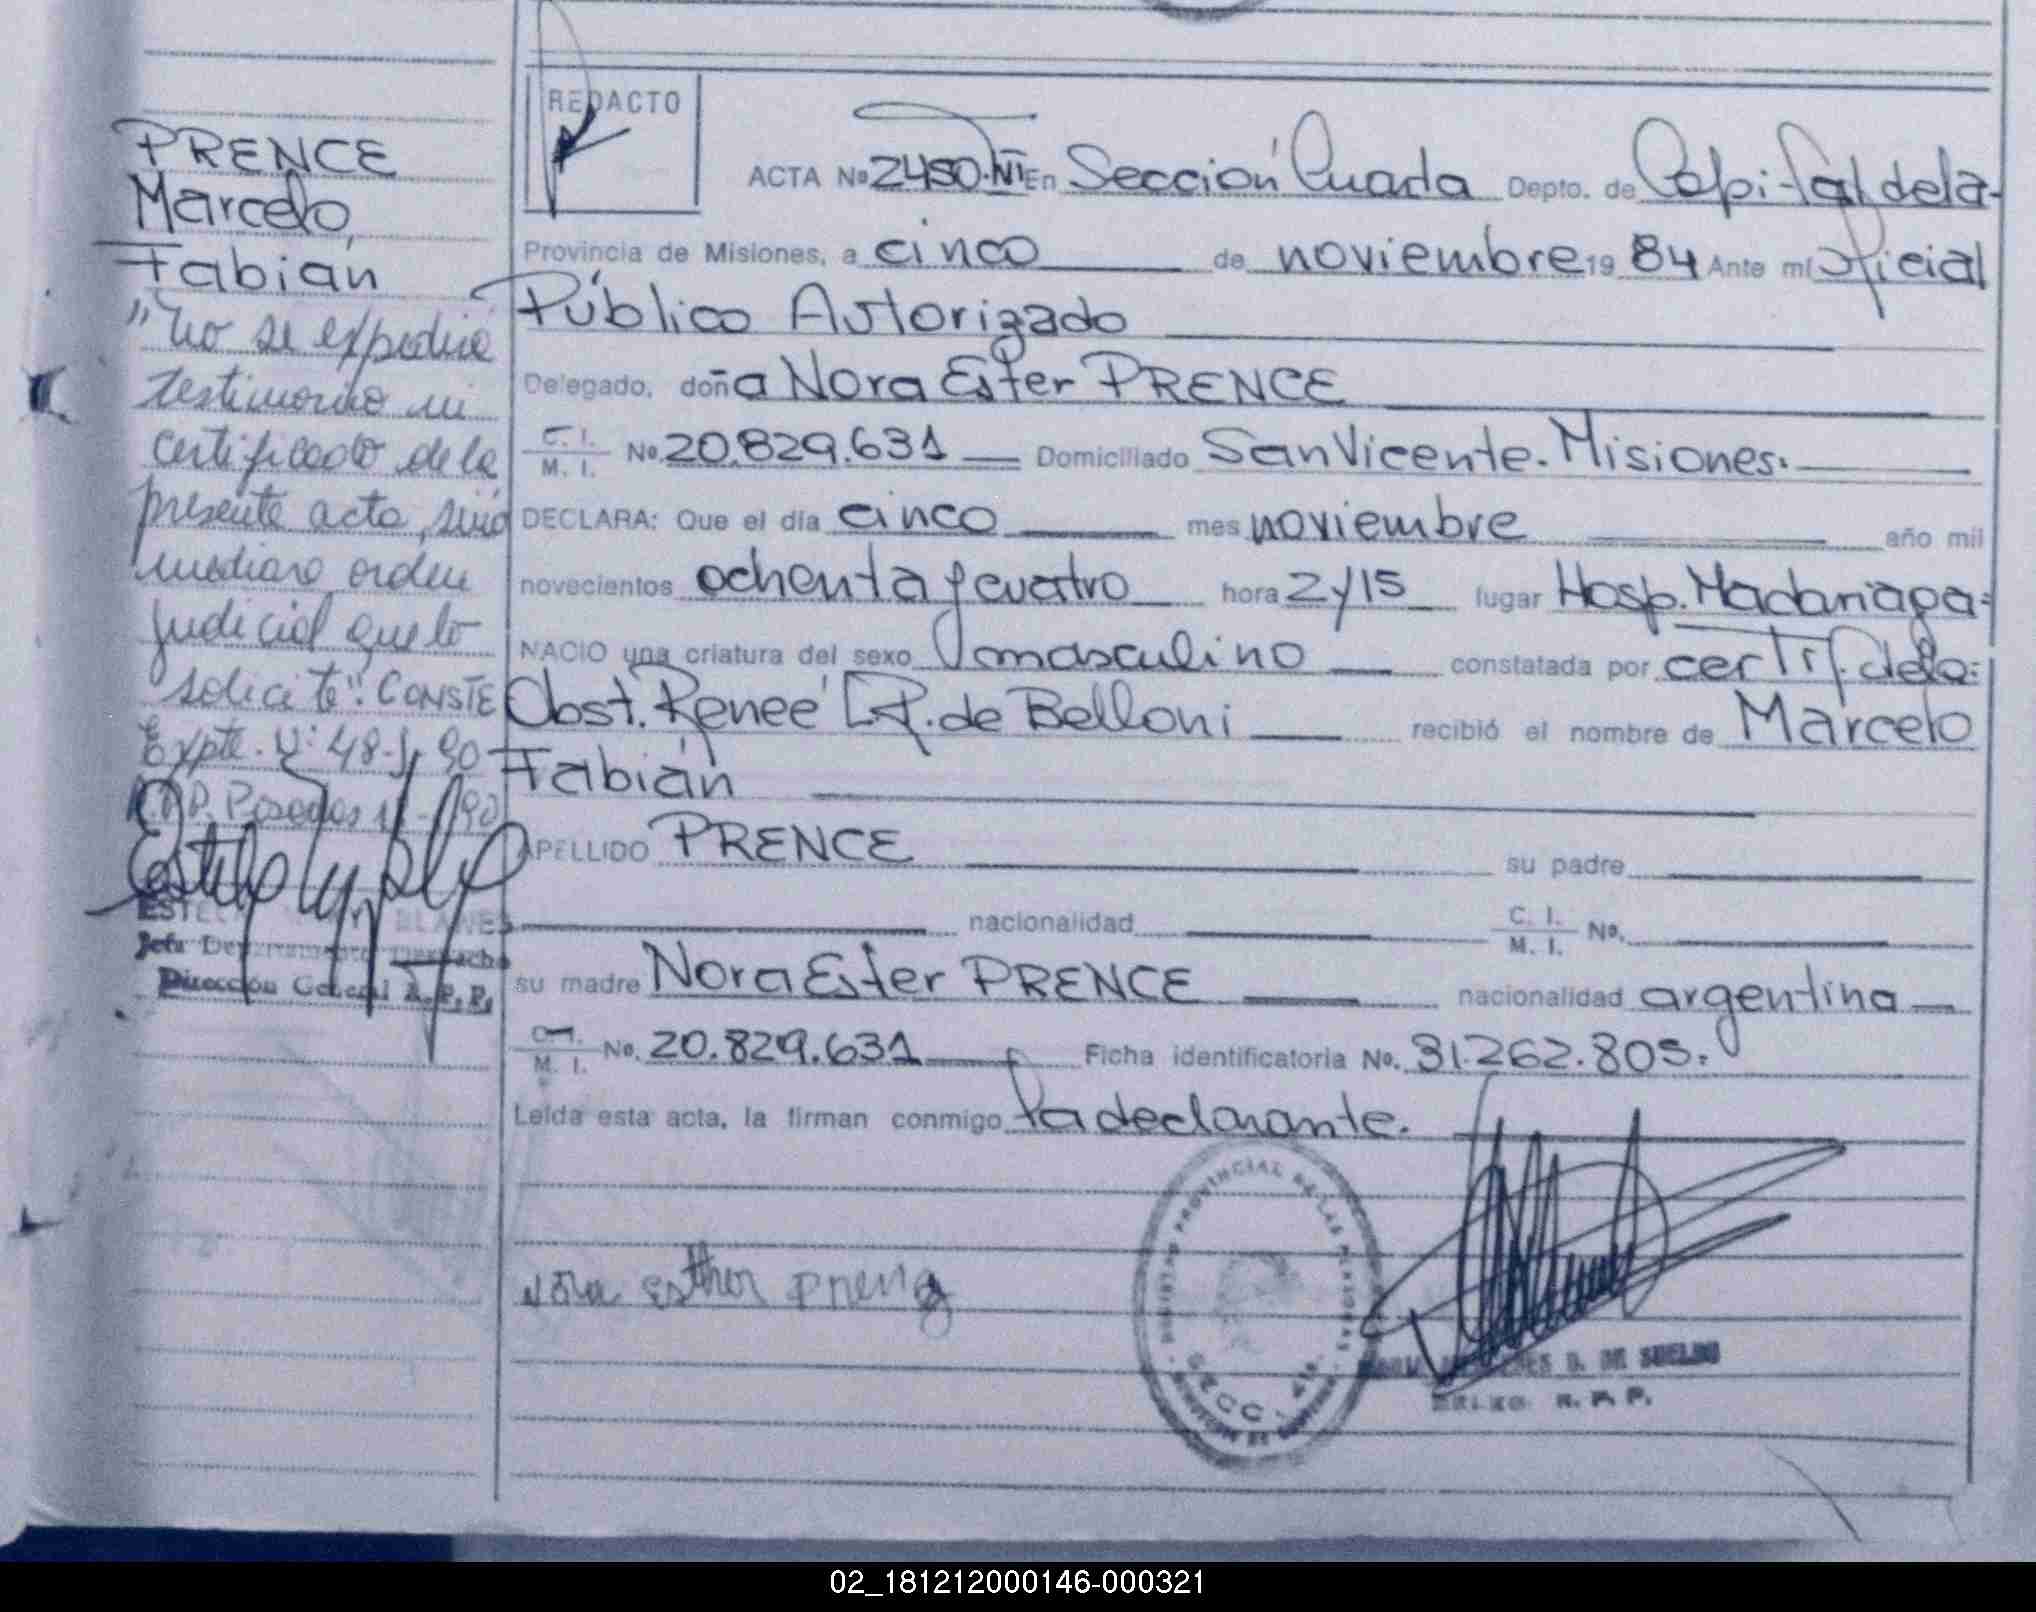 PRENCE
Marcelo,
Fabián
"No se expedirá
testimonio ni
certificado de la
presente acta, sino
mediare orden
judicial que lo
solicite". CONSTE
Expte. Nº 48-
R.P.P. Posadas
ESTELA BLANES
Jefa Departamento Despacho
Dirección General R.P.P.
REDACTO
ACTA Nº 2480. En Sección Cuarta Depto. de Capital de la-
Provincia de Misiones, a cinco de noviembre 19 84 Ante mí Oficial
Público Autorizado
Delegado, doña Nora Ester PRENCE
C. I. M. I. No. 20.829.631 Domiciliado San Vicente. Misiones.
DECLARA: Que el día cinco mes noviembre año mil
novecientos ochenta y cuatro hora 2y15 lugar Hosp. Madariaga-
NACIO una criatura del sexo masculino constatada por certif. de la:
Obst. Reneé R. de Belloni recibió el nombre de Marcelo
Fabián
APELLIDO PRENCE su padre
nacionalidad C. I. M. I. No.
su madre Nora Ester PRENCE nacionalidad argentina
C. I. M. I. No. 20.829.631 Ficha identificatoria No. 31.262.805.
Leída esta acta, la firman conmigo la declarante.
Nora Esther Prence
REGISTRO PROVINCIAL DE LAS PERSONAS
D. DE SUELDO
R. P. P.
02_181212000146-000321